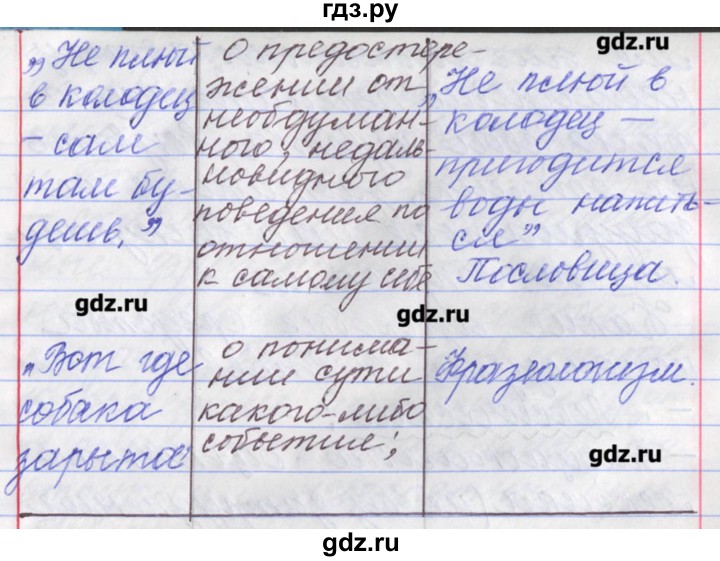 гдз.ру
gdz.ru
„Не плюй
в колодец
– сам
там бу-
дешь."
о предостере-
жении от
необдуман-
ного, недаль-
новидного
поведения по
отношении
к самому себе
„Не плюй в
колодец –
пригодится
воды напить-
ся"
Пословица.
gdz.ru
gdz.ru
„Вот где
собака
зарыта"
о понима-
нии сути
какого-либо
событие;
Фразеологизм.
gdz.ru
gdz.ru